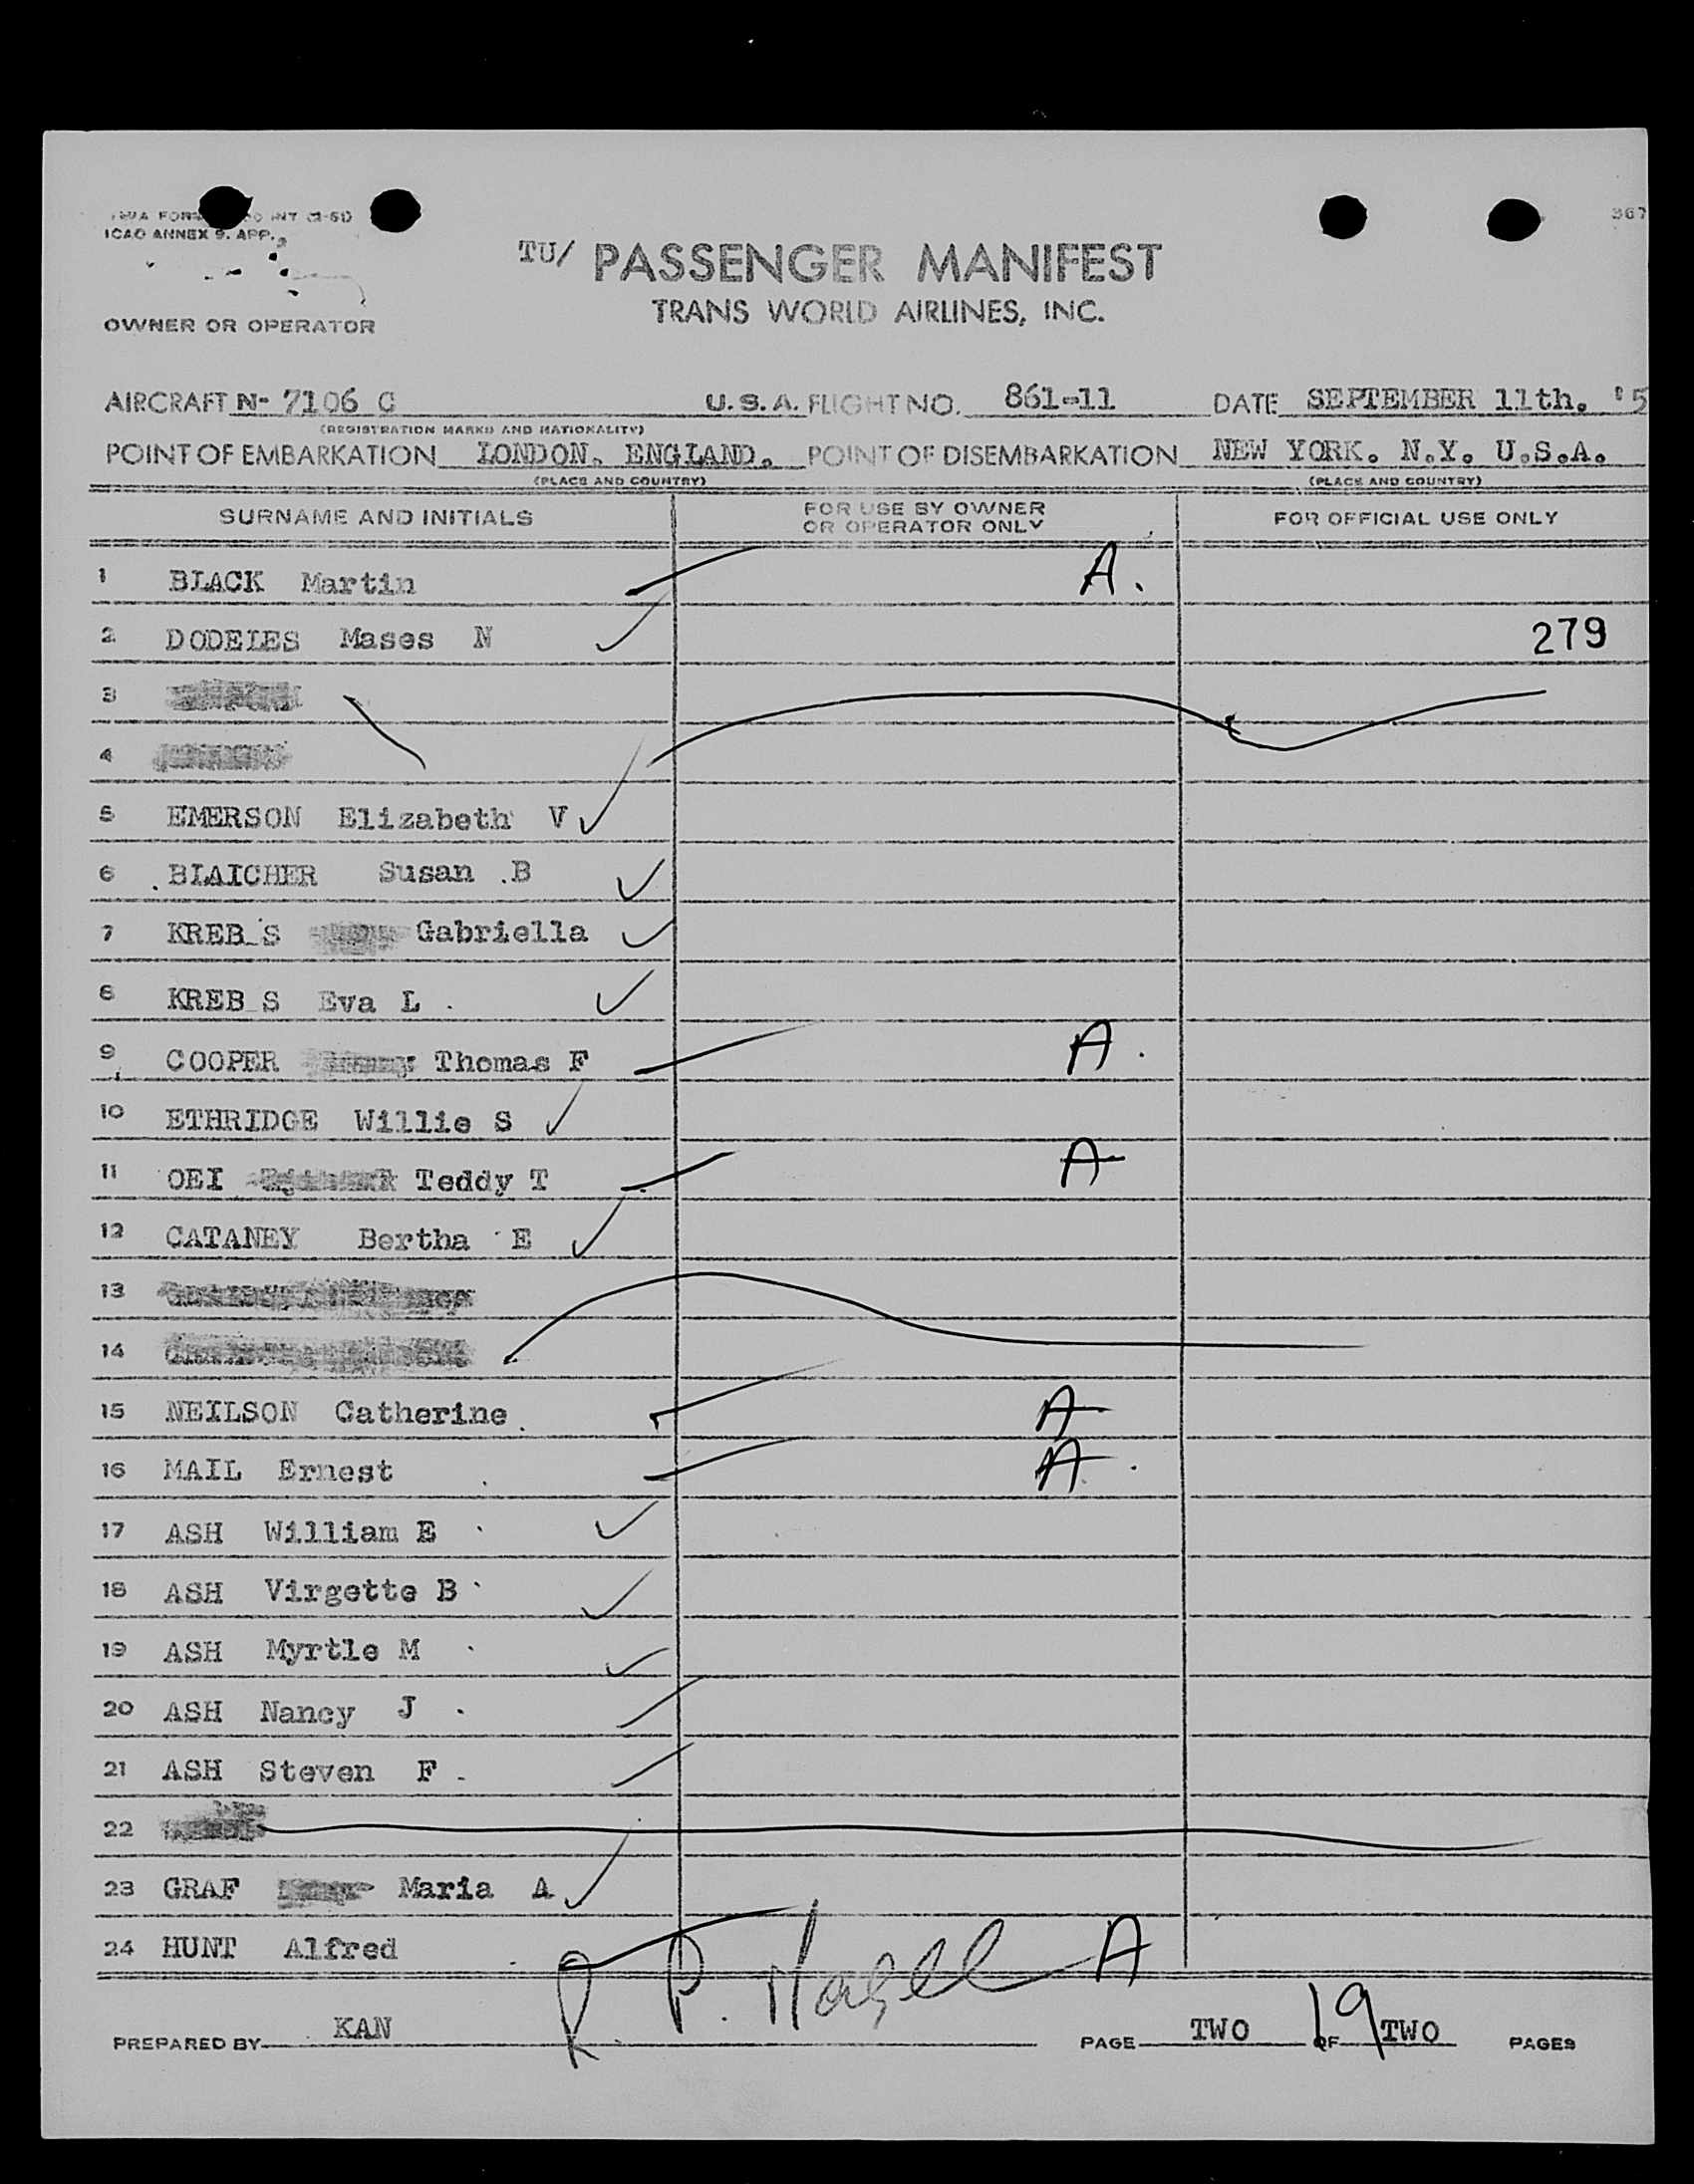 367
ICAO ANNEX 9. APP.
TU/ PASSENGER MANIFEST
TRANS WORLD AIRLINES, INC.
OWNER OR OPERATOR
AIRCRAFT N- 7106 C U.S.A. FLIGHT NO. 861-11 DATE SEPTEMBER 11th. '5
(REGISTRATION MARKS AND NATIONALITY)
POINT OF EMBARKATION LONDON. ENGLAND. POINT OF DISEMBARKATION NEW YORK. N.Y. U.S.A.
(PLACE AND COUNTRY) (PLACE AND COUNTRY)
SURNAME AND INITIALS FOR USE BY OWNER OR OPERATOR ONLY FOR OFFICIAL USE ONLY
1 BLACK Martin A.
2 DODELES Mases N 279
3
4
5 EMERSON Elizabeth V
6 BLAICHER Susan .B
7 KREB_S Gabriella
8 KREB_S Eva L .
9 COOPER Thomas F A.
10 ETHRIDGE Willie S
11 OEI Teddy T A
12 CATANEY Bertha E
13
14
15 NEILSON Catherine A
16 MAIL Ernest A.
17 ASH William E
18 ASH Virgette B
19 ASH Myrtle M
20 ASH Nancy J .
21 ASH Steven F .
22
23 GRAF Maria A
24 HUNT Alfred A
PREPARED BY KAN R. P. PAGE TWO OF TWO PAGES
19